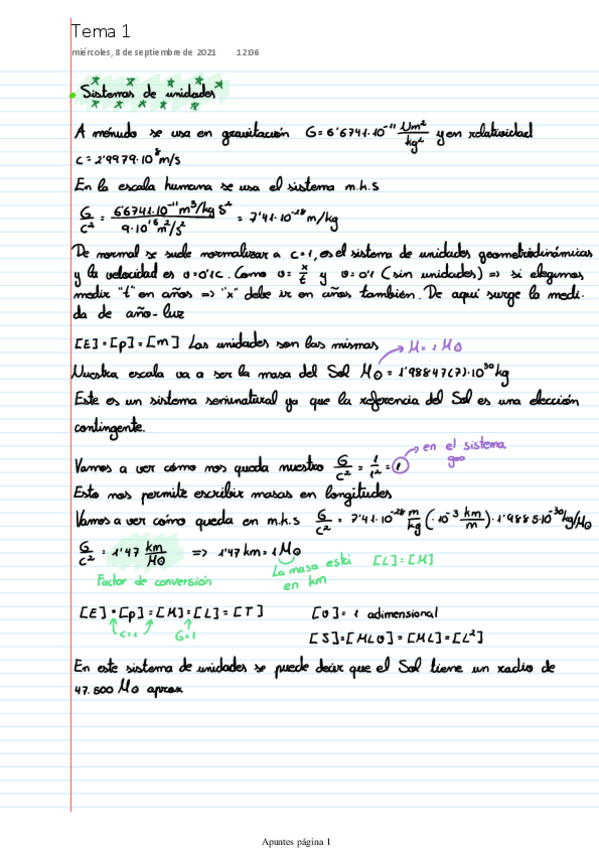 Tema 1
miércoles, 8 de septiembre de 2021 12:06
Sistemas de unidades
A ménudo se usa en gravitación G = 6'6741·10⁻¹¹ Nm²/kg² y en relatividad
c = 2'9979·10⁸ m/s
En la escala humana se usa el sistema m.k.s
G/c² = 6'6741·10⁻¹¹ m³/kg s² / 9·10¹⁶ m²/s² = 7'41·10⁻²⁸ m/kg
De normal se suele normalizar a c=1, es el sistema de unidades geometrodinámicas
y la velocidad es v=0'1c. Como v = x/t y v=0'1 (sin unidades) => si elegimos
medir "t" en años => "x" debe ir en años también. De aquí surge la medi-
da de año-luz
[E] = [p] = [m] Las unidades son las mismas → M = 1 M⊙
Nuestra escala va a ser la masa del Sol M⊙ = 1'98847(7)·10³⁰ kg
Este es un sistema seminatural ya que la referencia del Sol es una elección
contingente.
Vamos a ver cómo nos queda nuestro G/c² = 1/1² = 1 → en el sistema
geo
Esto nos permite escribir masas en longitudes
Vamos a ver cómo queda en m.k.s G/c² = 7'41·10⁻²⁸ m/kg (·10⁻³ km/m)·1'9885·10³⁰ kg/M⊙
G/c² = 1'47 km/M⊙ => 1'47 km = 1 M⊙
Factor de conversión La masa está en km [L] = [M]
[E] = [p] = [M] = [L] = [T] [v] = 1 adimensional
c=1 G=1 [S] = [MLv] = [ML] = [L²]
En este sistema de unidades se puede decir que el Sol tiene un radio de
47.500 M⊙ aprox
Apuntes página 1